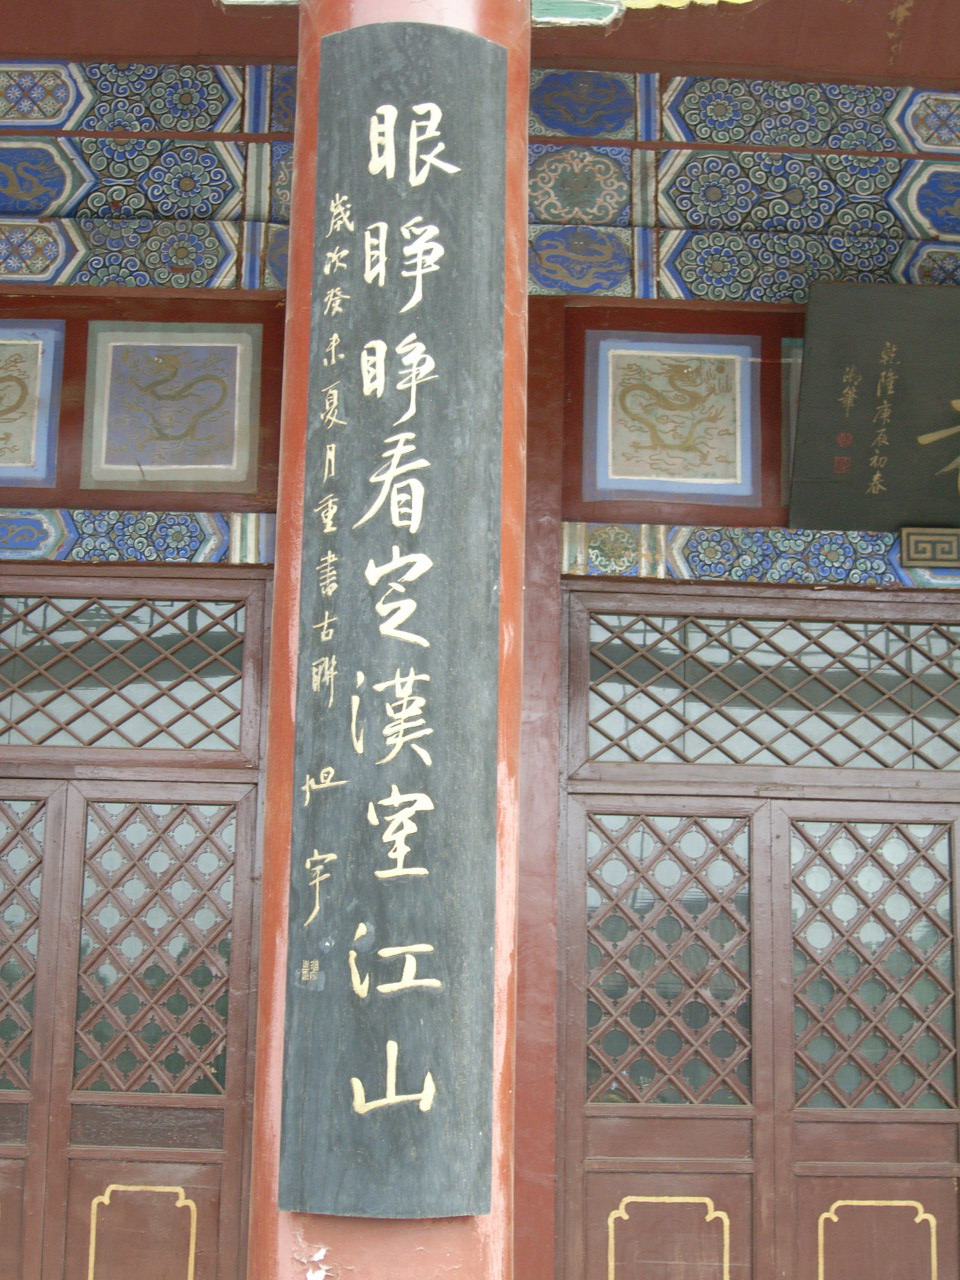 眼睁睁看定漢室江山
歲次癸未夏月重書古聯
旭宇
乾隆庚辰初春
御筆